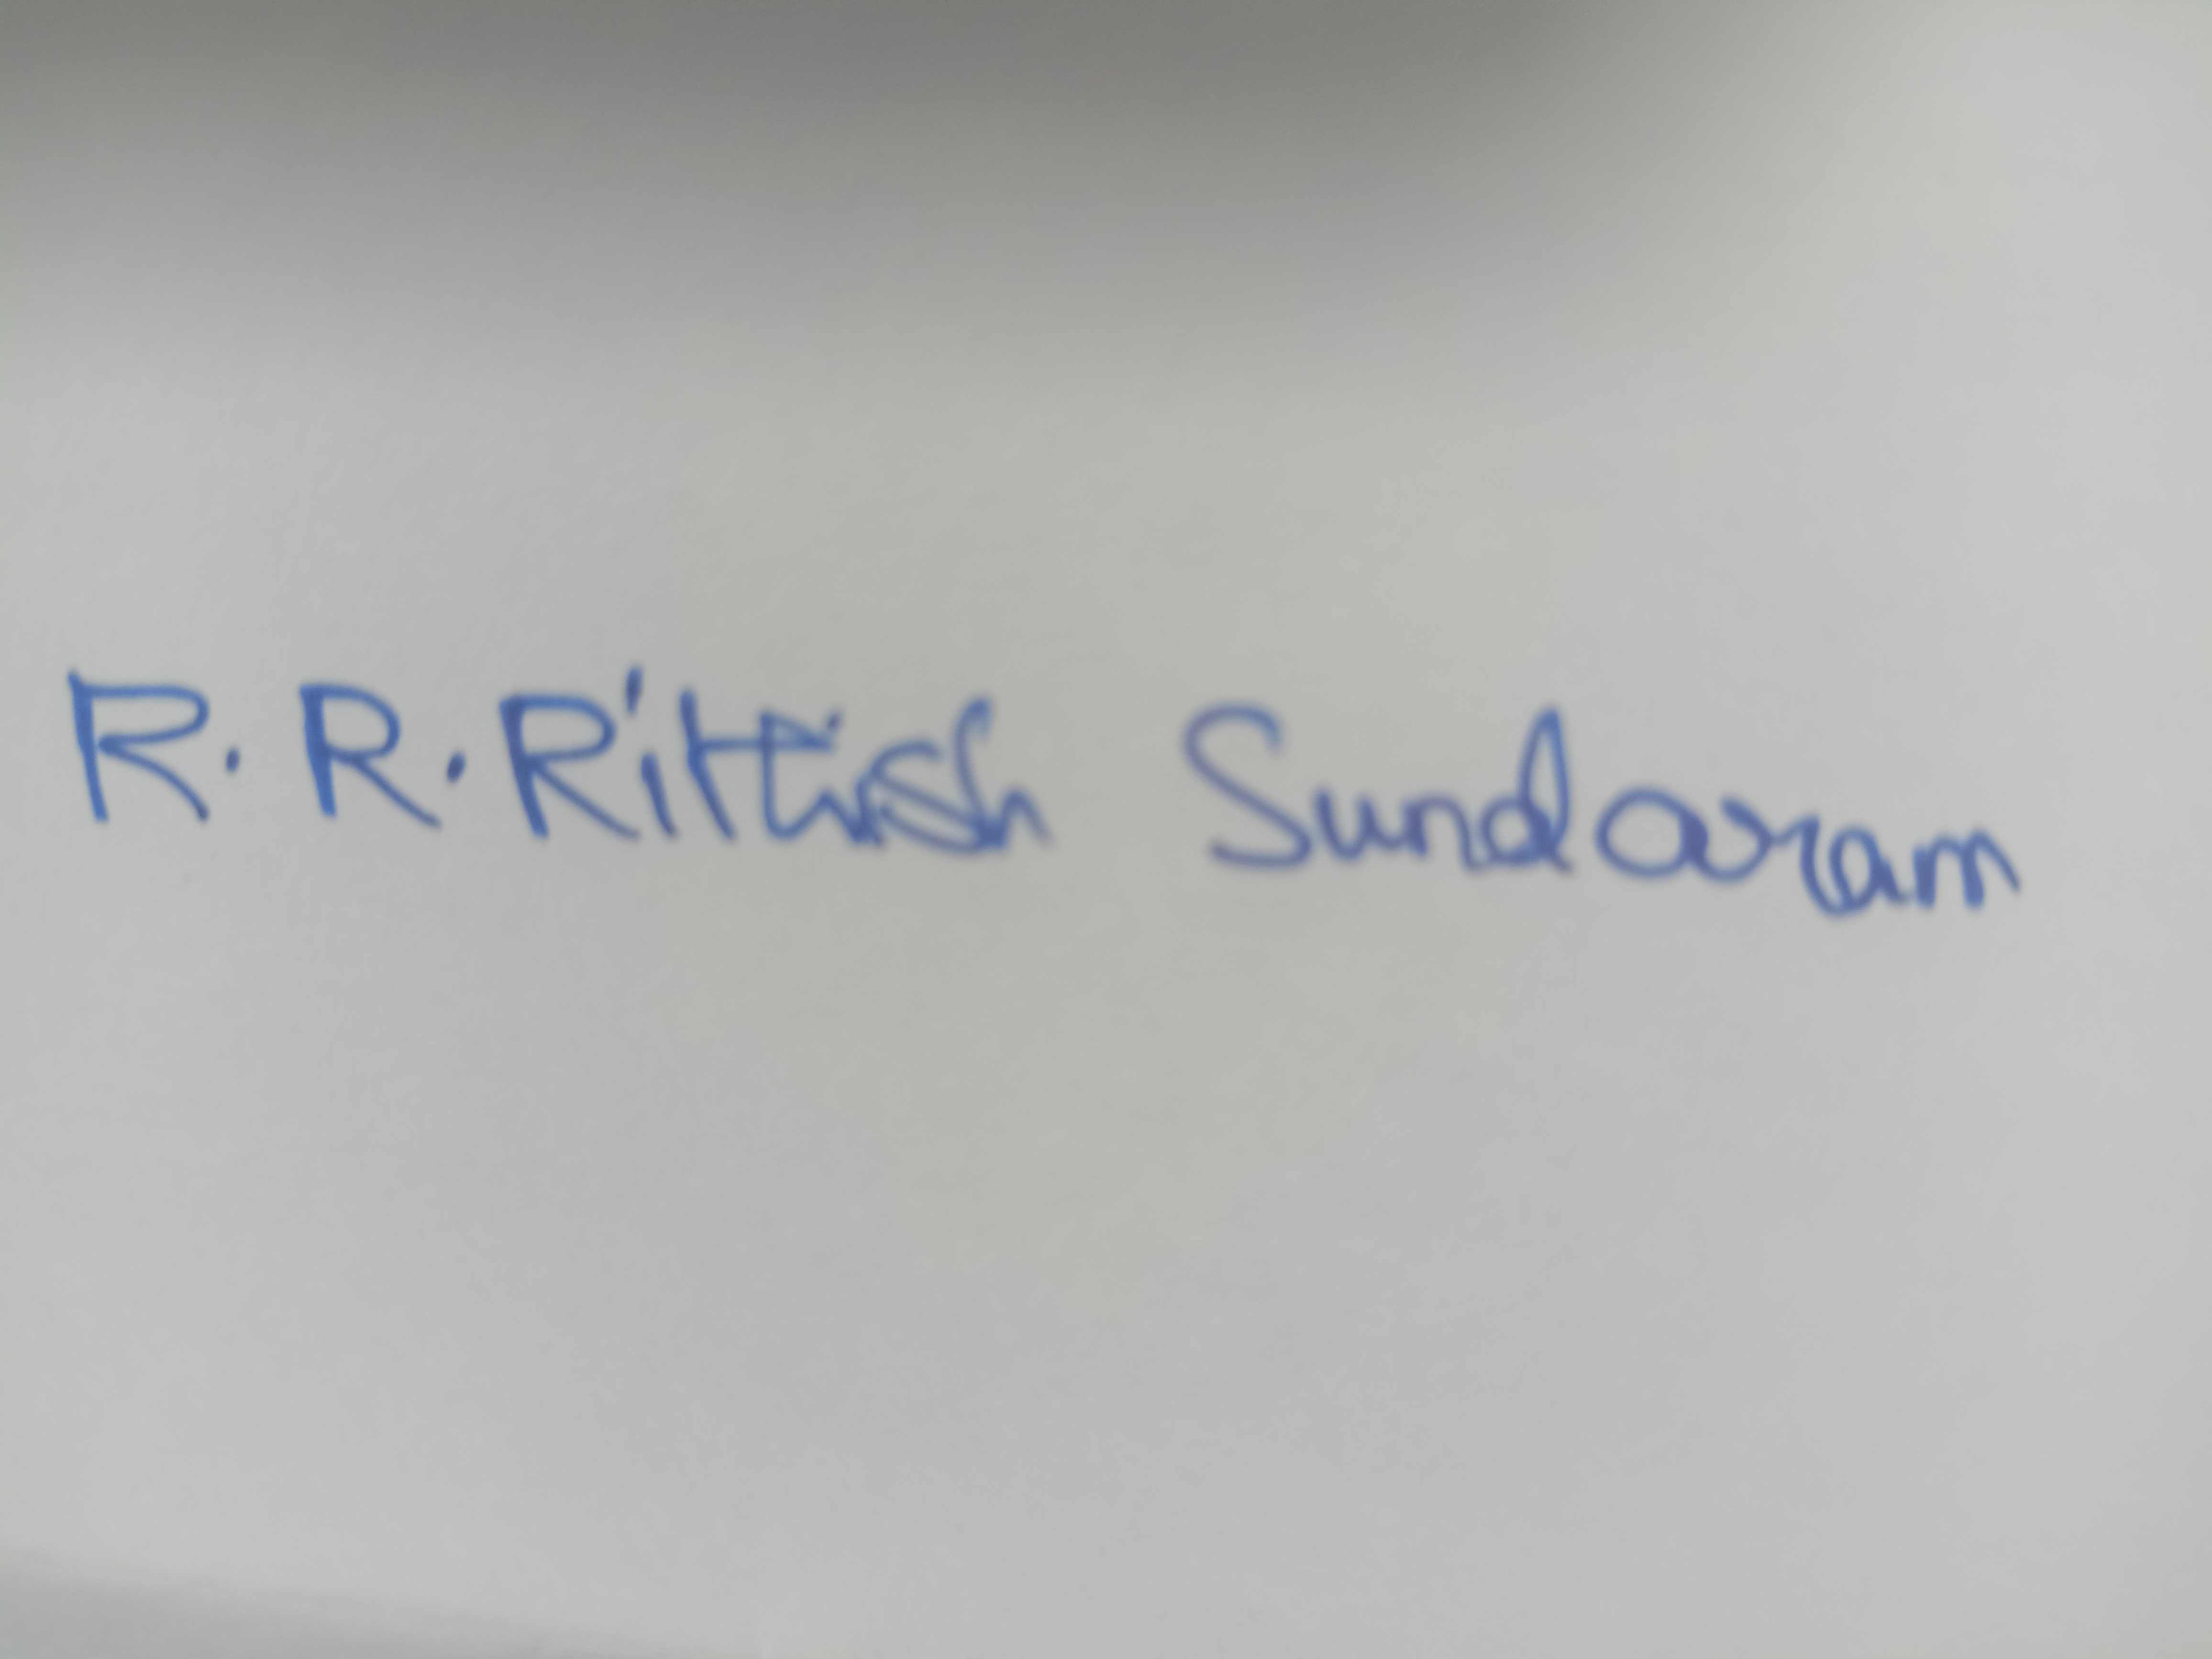 R. R. Rittish Sundaram